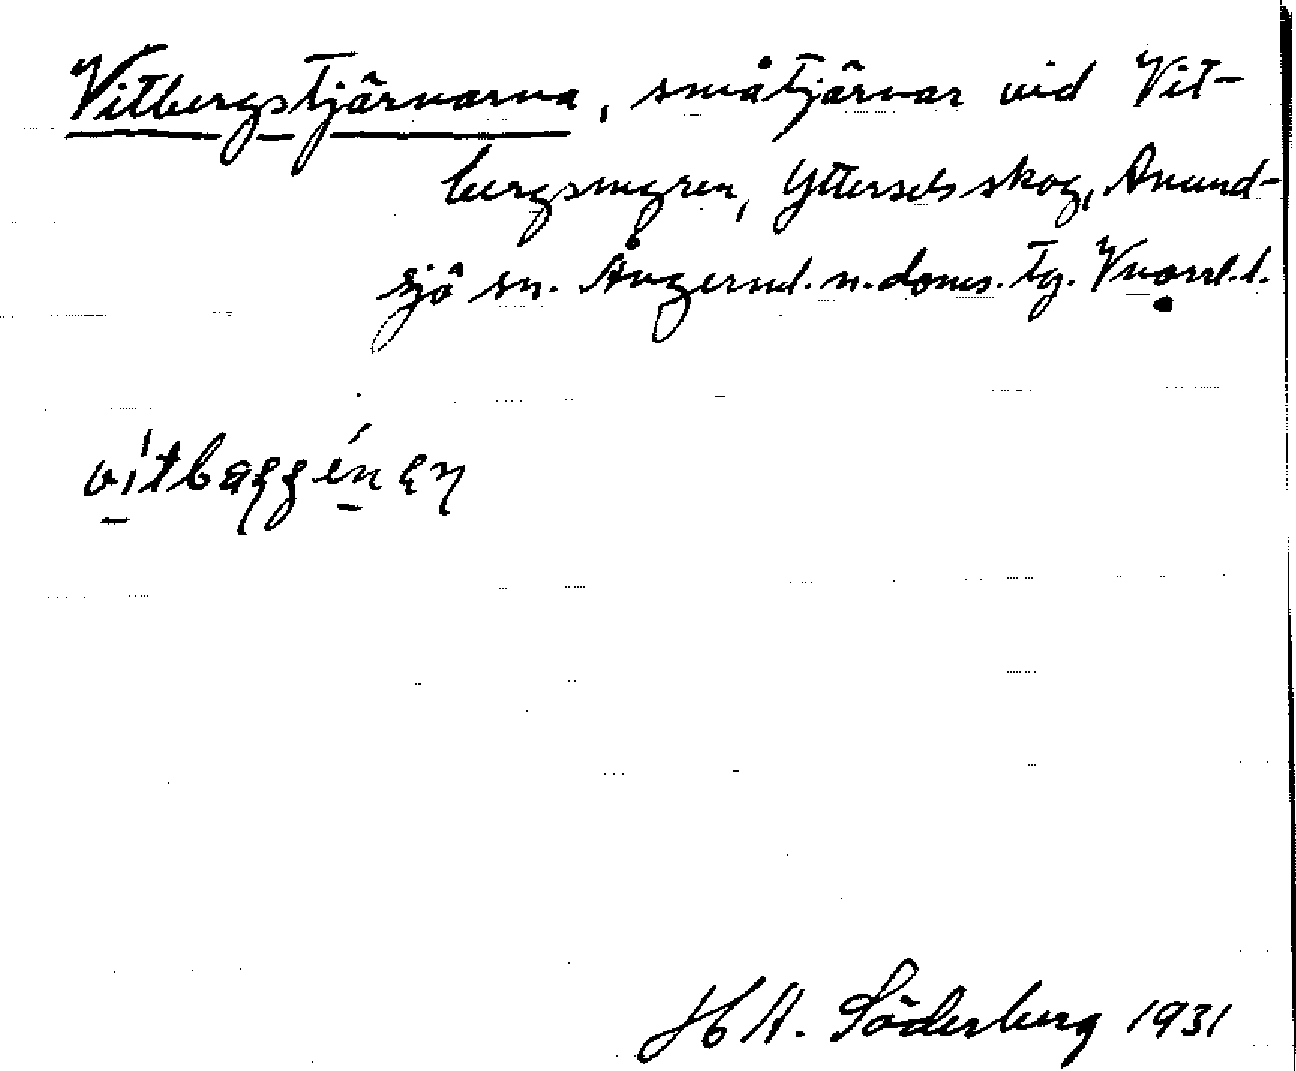 Vitbergstjärnarna, småtjärnar vid Vit-
bergsmyren, Ytterselsskog, Anund-
sjö sn. Ångerml. n. doms. tg.
H A. Söderberg 1931